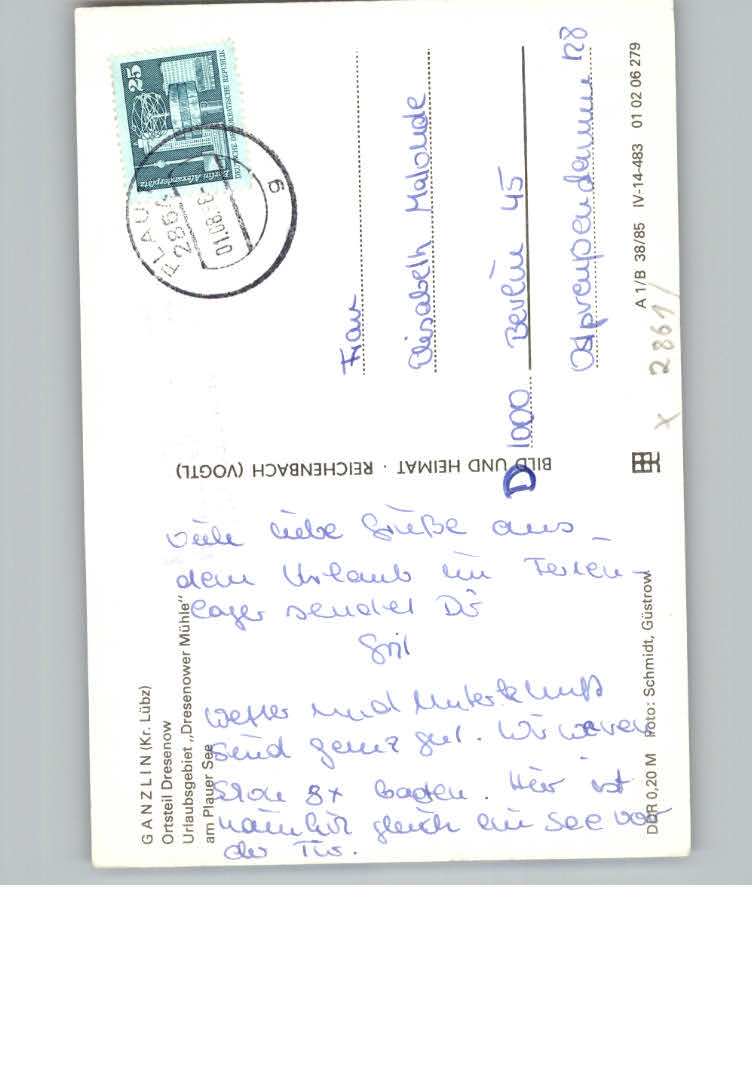 GANZLIN (Kr. Lübz)
Ortsteil Dresenow
Urlaubsgebiet „Dresenower Mühle"
am Plauer See
Viele liebe Grüße aus
dem Urlaub im Ferien-
lager sendet Dir
Gril
Wetter und Unterkunft
sind ganz gut. Wir waren
schon 8x baden. Hier ist
nämlich gleich ein See vor
der Tür.
DDR 0,20 M Foto: Schmidt, Güstrow
BILD UND HEIMAT · REICHENBACH (VOGTL)
25
Berlin, Alexanderplatz
DEUTSCHE DEMOKRATISCHE REPUBLIK
PLAU
2864
01.08.8
6
Frau
Elisabeth Malonde
D 1000 Berlin 45
Ostpreußendamm 128
A 1/B 38/85 IV-14-483 01 02 06 279
x 2861/